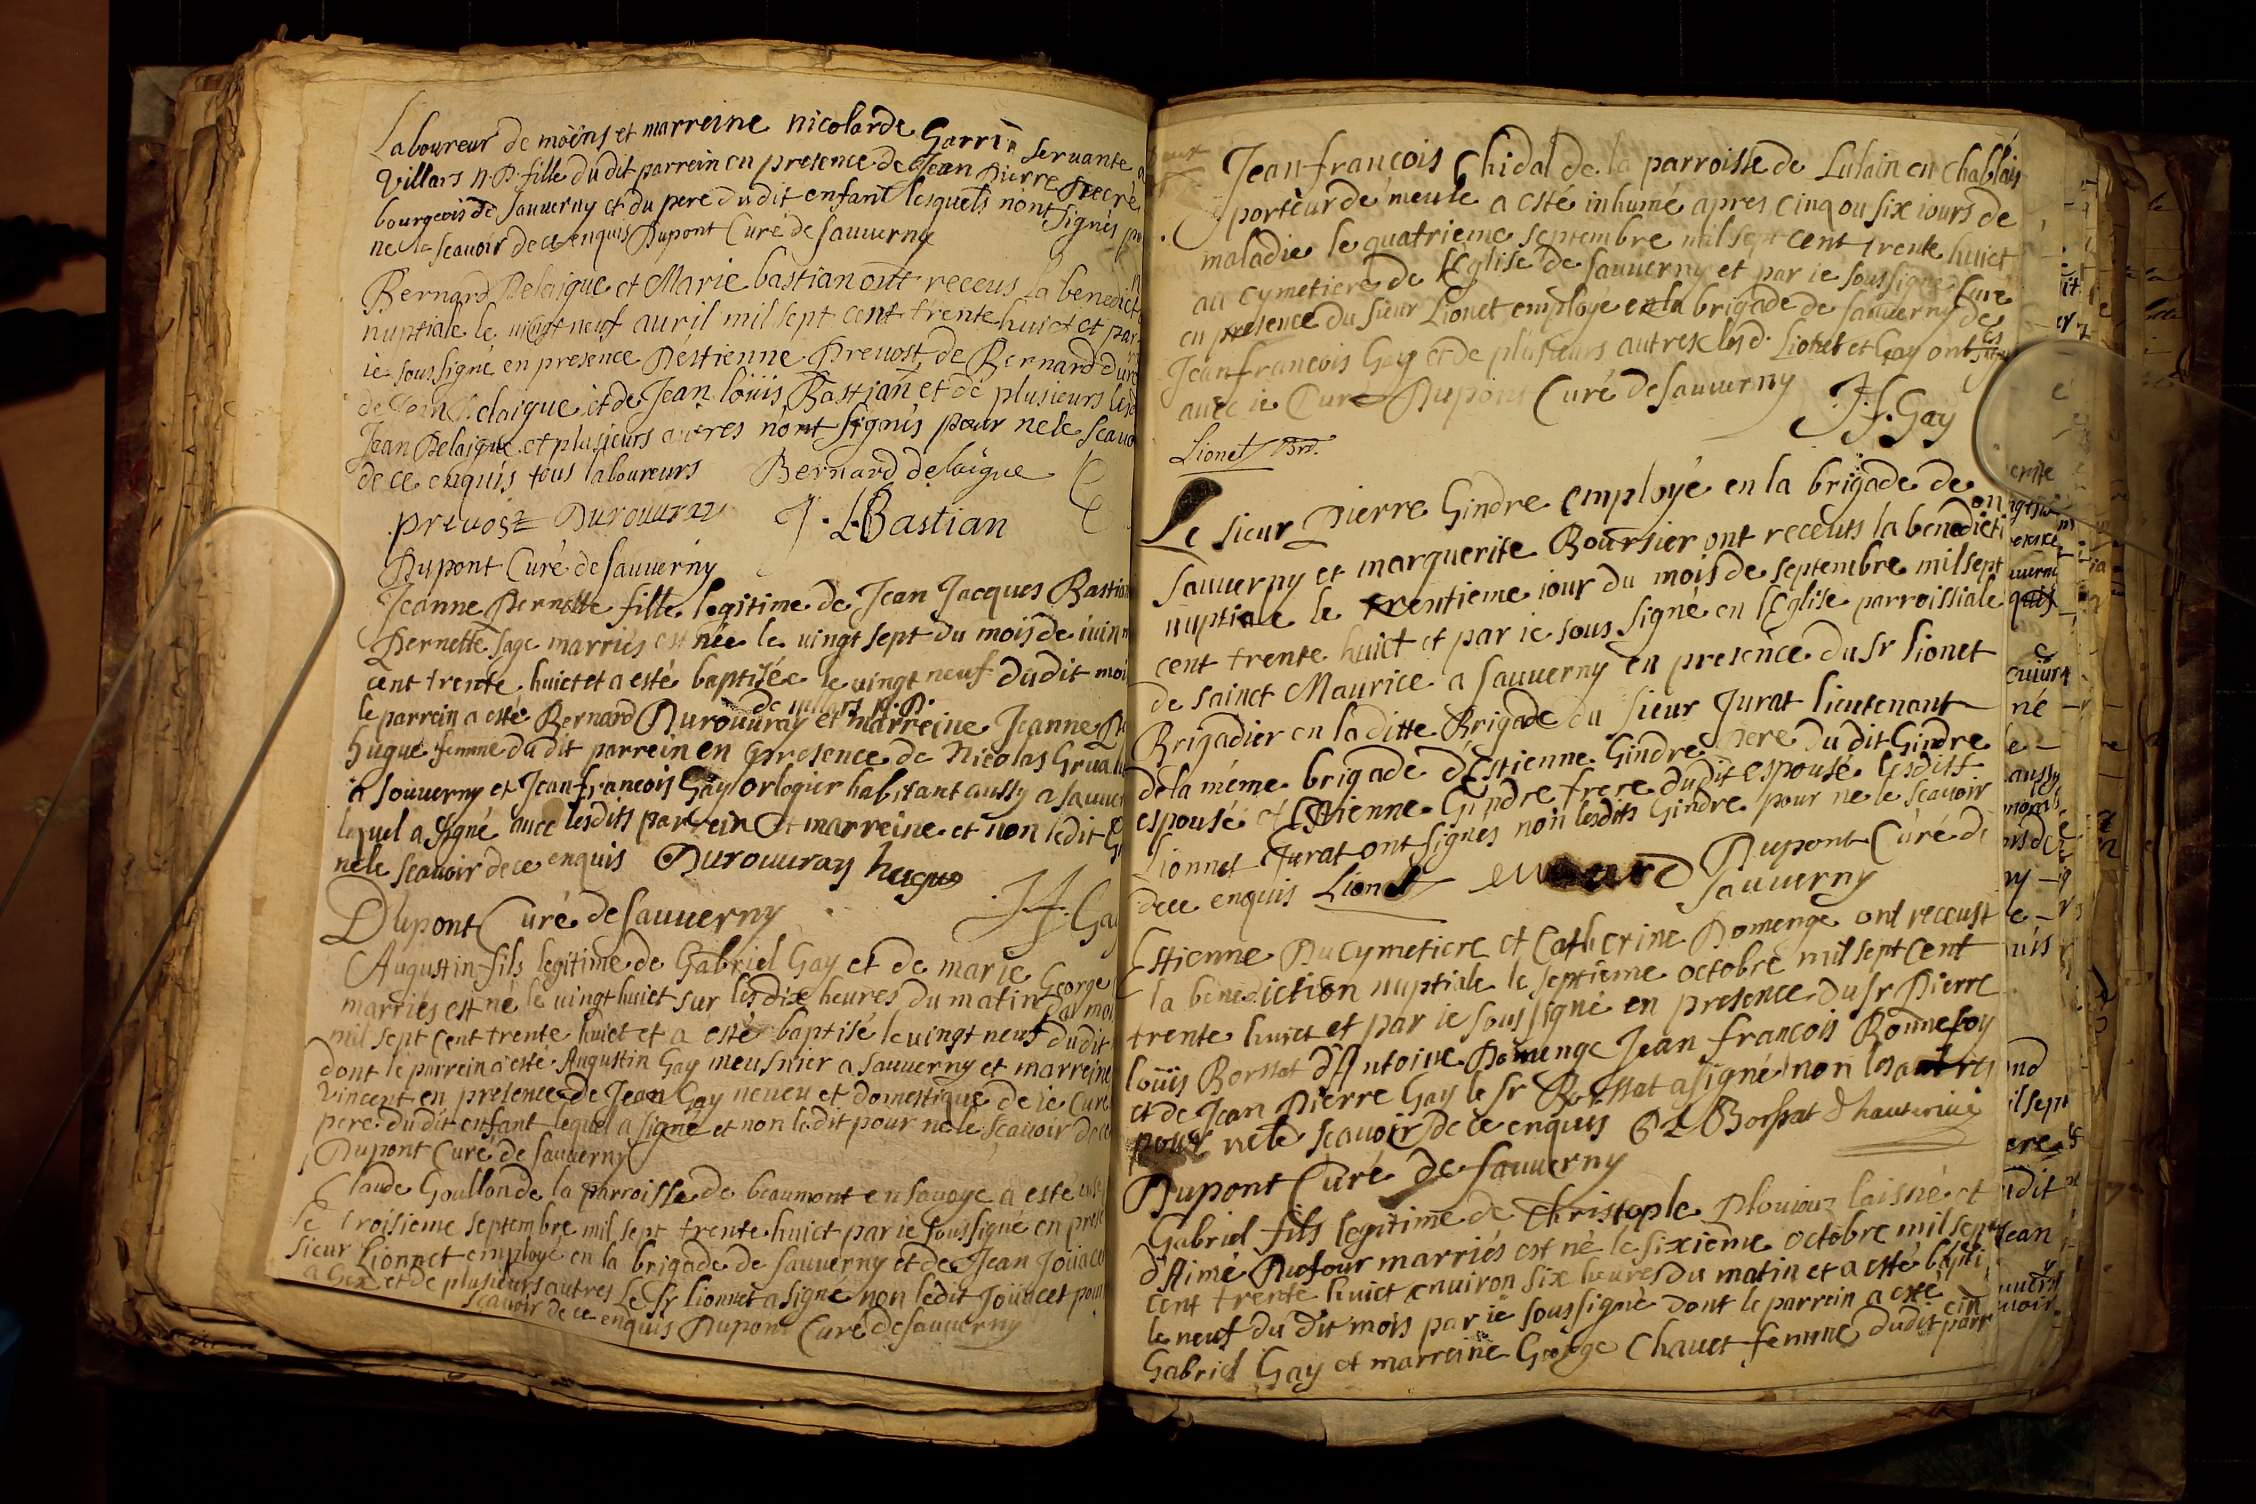 Laboureur de moëns et marreine nicolarde Garrin servante a
Villars N.D. fille du dit parrein en presence de Jean Pierre
bourgeois de Sauverny et du pere du dit enfant lesquels nont signés po
ne le scavoir de ce enquis Dupont Curé de sauverny
Bernard Delaigue et Marie bastian ont receus la benedict
nuptiale le vingt neuf auril mil sept cent trente huict et par
ie sous signé en presence D'éstienne Prevost de Bernard duro
de Jean Delaigue et de Jean loüis Bastian et de plusieurs lesd
Jean Delaigue et plusieurs autres nont signés pour nele scauo
de ce enquis tous laboureurs Bernard delaigue
prevost Durouvray J. L. Bastian
Dupont Curé de sauverny
Jeanne Pernette fille legitime de Jean Jacques Bastian
Pernette sage marriés est née le vingt sept du mois de iuin m
cent trente huict et a esté baptisée le vingt neuf dudit moi
de villars N.D.
le parrein a esté Bernard Durouvray et marreine Jeanne
hugue femme du dit parrein en presence de Nicolas
a souverny et Jean francois Gay orlogier habitant aussy a sauver
lequel a signé avec lesdits parrein et marreine et non ledit
nele scavoir de ce enquis Durouvray hugue
Dupont Curé de sauverny J f Gay
Augustin fils legitime de Gabriel Gay et de marie George
marriés est né le vingt huict sur les dix heures du matin du moi
mil sept cent trente huict et a esté baptisé le vingt neuf dudit
dont le parrein a esté Augustin Gay meusnier a sauverny et marreine
Vincent en presence de Jean Gay neveu et domestique de ie Curé
pere du dit enfant lequel a signé et non ledit pour nele scavoir de ce
Dupont Curé de sauverny
Claude Goullon de la parroisse de beaumont en savoye a esté
le troisieme septembre mil sept trente huict par ie soussigné en prese
sieur Lionnet employé en la brigade de sauverny et de Jean Joüacet
a Gex et de plusieurs autres le sr lionnet a signé non ledit Joüacet pour
scavoir de ce enquis Dupont Curé de sauverny
Jean francois Chidal de la parroisse de Lulain en chablais
porteur de meule a esté inhumé apres cinq ou six iours de
maladie le quatrieme septembre mil sept cent trente huict
au cymetiere de l'Eglise de sauverny et par ie soussigné Curé
en presence du sieur Lionet employé en la brigade de sauverny de
Jean francois Gay et de plusieurs autres lesd. Lionet et Gay ont
avec ie Curé Dupont Curé de sauverny J. f. Gay
Lionet Brd.
Le sieur Pierre Gindre employé en la brigade de
Sauverny et marguerite Boursier ont receus la benediction
nuptiale le trentieme iour du mois de septembre mil sept
cent trente huict et par ie sous signé en l'Eglise parroissiale
de sainct Maurice a sauverny en presence du sr lionet
Brigadier en la ditte Brigade du sieur Jurat lieutenant
de la méme brigade d'Estienne Gindre pere du dit Gindre
espousé et Estienne Gindre frere du dit espousé lesdits
Lionnet Jurat ont signés non lesdits Gindre pour ne le scavoir
de ce enquis Lionet Dupont Curé de
sauverny
Estienne Ducymetiere et Catherine Domenge ont receust
la benediction nuptiale le septieme octobre mil sept cent
trente huict et par ie sous signé en presence du sr Pierre
loüis Borssat d'Antoine Domenge Jean francois Bonnefoy
et de Jean Pierre Gay le sr Borssat a signé non les autres
pour nele scavoir de ce enquis P L Borssat d'hauterive
Dupont Curé de sauverny
Gabriel fils legitime de Christople Plouiouz laisné et
d'Aimé Dufour marriés est né le sixieme octobre mil sept
cent trente huict environ six heures du matin et a esté bapti
le neuf du dit mois par ie soussigné dont le parrein a esté
Gabriel Gay et marreine George Chavet femme dudit parrein